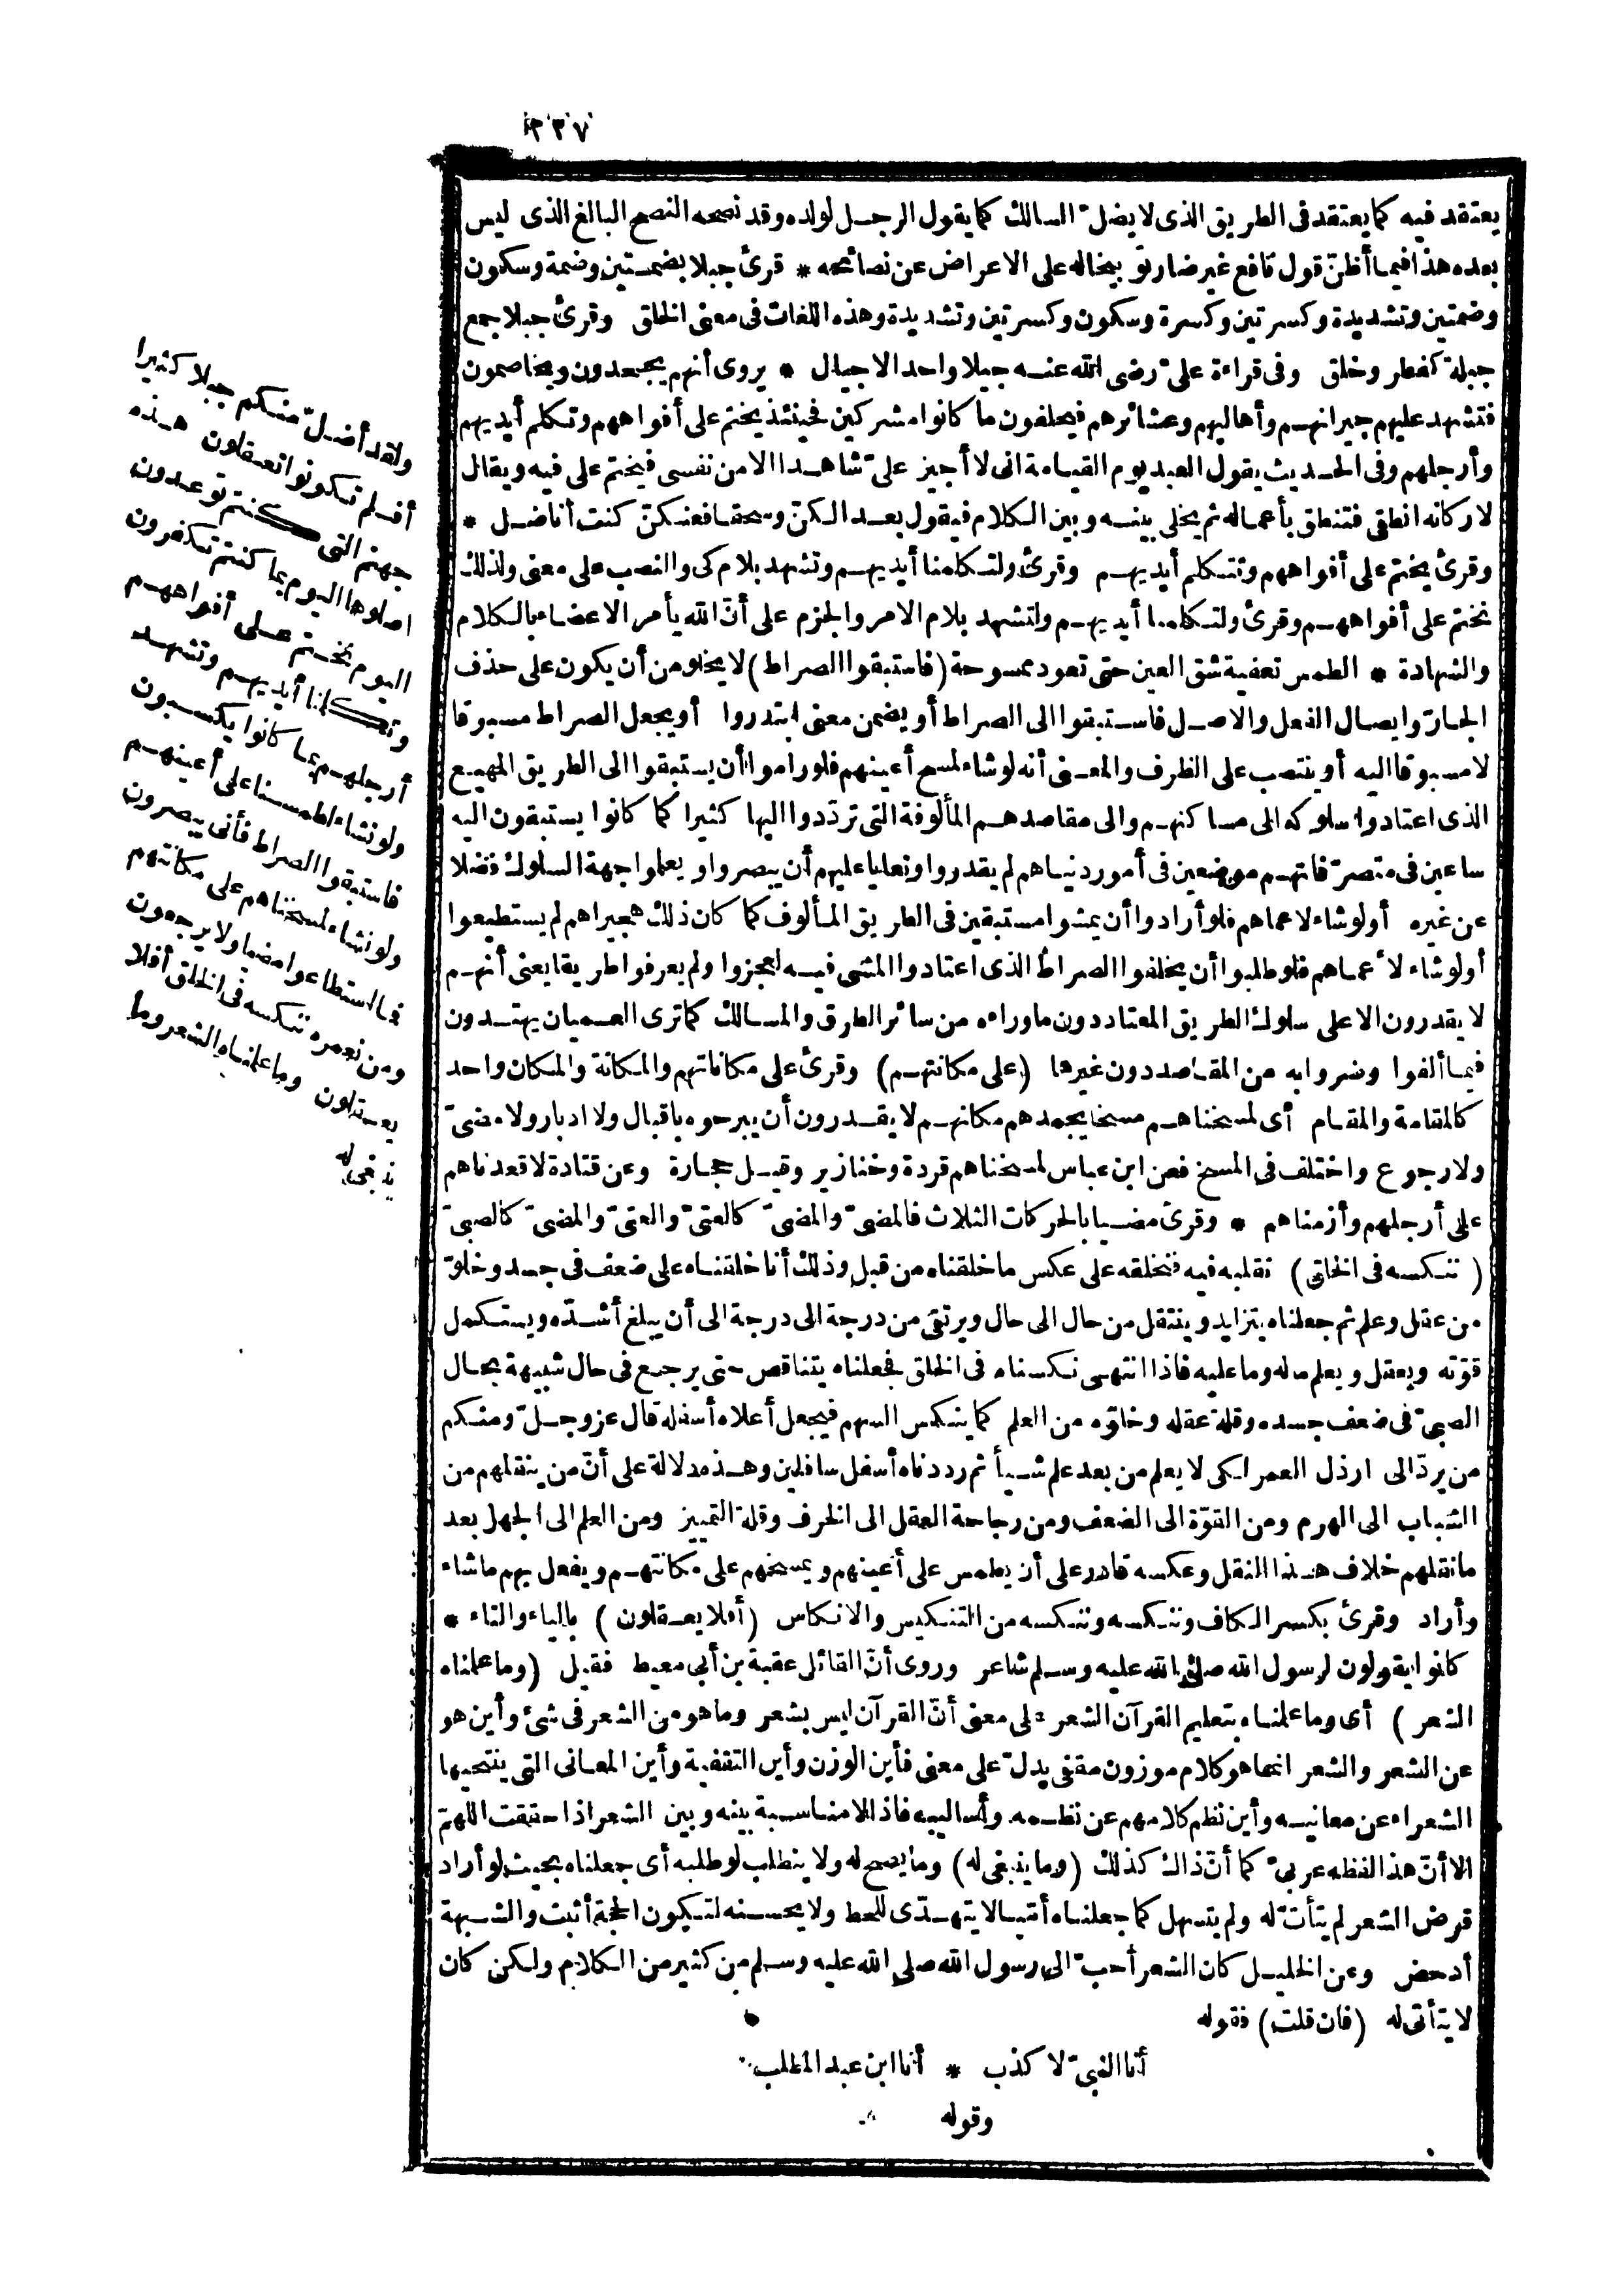 ٣٣٧
يعتقد فيه كما يعتقد فى الطريق الذى لا يضلّ السالك كما يقول الرجل لولده وقد نصحه النصح البالغ الذى ليس
بعده هذا فيما أظنّ قول نافع غير ضار توبيخا له على الاعراض عن نصائحه * قرئ جبلا بضمتين وضمة وسكون
وضمتين وتشديدة وكسرتين وكسرة وسكون وكسرتين وتشديدة وهذه اللغات فى معنى الخلق وقرئ جبلا جمع
جبلة كفطر وخلق وفى قراءة علىّ رضى الله عنه جيلا واحد الاجيال * يروى أنهم يجحدون ويخاصمون
فتشهد عليهم جيرانهم وأهاليهم وعشائرهم فيحلفون ما كانوا مشركين فحينئذ يختم على أفواههم وتكلم أيديهم
وأرجلهم وفى الحديث يقول العبد يوم القيامة انى لا أجيز علىّ شاهدا الا من نفسى فيختم على فيه ويقال
لاركانه انطقى فتنطق بأعماله ثم يخلى بينه وبين الكلام فيقول بعدا لكنّ وسحقا فعنكنّ كنت أناضل *
وقرئ يختم على أفواههم وتتكلم أيديهم وقرئ ولتكلمنا أيديهم وتشهد بلام كى والنصب على معنى ولذلك
نختم على أفواههم وقرئ ولتكلمنا أيديهم ولتشهد بلام الامر والجزم على أنّ الله يأمر الاعضاء بالكلام
والشهادة * الطمس تعفية شق العين حتى تعود ممسوحة (فاستبقوا الصراط) لا يخلو من أن يكون على حذف
الجارّ وايصال الفعل والاصل فاستبقوا الى الصراط أو يضمن معنى ابتدروا أو يجعل الصراط مسبوقا
لا مسبوقا اليه أو ينتصب على الظرف والمعنى أنه لو شاء لمسح أعينهم فلو راموا أن يستبقوا الى الطريق المهيع
الذى اعتادوا سلوكه الى مساكنهم والى مقاصدهم المألوفة التى تردّدوا اليها كثيرا كما كانوا يستبقون اليه
ساعين فى متصرّفاتهم موضعين فى أمور دنياهم لم يقدروا وتعايا عليهم أن يبصروا ويعلموا جهة السلوك فضلا
عن غيره أو لو شاء لاعماهم فلو أرادوا أن يمشوا مستبقين فى الطريق المألوف كما كان ذلك هجيراهم لم يستطيعوا
أو لو شاء لأعماهم فلو طلبوا أن يخلفوا الصراط الذى اعتادوا المشى فيه لعجزوا ولم يعرفوا طريقا يعنى أنهم
لا يقدرون الا على سلوك الطريق المعتاد دون ما وراءه من سائر الطرق والمسالك كما ترى العميان يهتدون
فيما ألفوا وضروا به من المقاصد دون غيرها (على مكانتهم) وقرئ على مكاناتهم والمكانة والمكان واحد
كالمقامة والمقام أى لمسخناهم مسخا يجمدهم مكانهم لا يقدرون أن يبرحوه باقبال ولا ادبار ولا مضىّ
ولا رجوع واختلف فى المسخ فعن ابن عباس لمسخناهم قردة وخنازير وقيل حجارة وعن قتادة لاقعدناهم
على أرجلهم وأزمناهم * وقرئ مضيا بالحركات الثلاث فالمضىّ والمضىّ كالعتىّ والعتىّ والمضىّ كالصبىّ
(ننكسه فى الخلق) نقلبه فيه فنخلقه على عكس ما خلقناه من قبل وذلك أنا خلقناه على ضعف فى جسد وخلوّ
من عقل وعلم ثم جعلناه يتزايد وينتقل من حال الى حال ويرتقى من درجة الى درجة الى أن يبلغ أشدّه ويستكمل
قوّته ويعقل ويعلم ما له وما عليه فاذا انتهى نكسناه فى الخلق فجعلناه يتناقص حتى يرجع فى حال شبيهة بحال
الصبىّ فى ضعف جسده وقلة عقله وخلوّه من العلم كما ينكس السهم فيجعل أعلاه أسفله قال عز وجلّ ومنكم
من يردّ الى ارذل العمر لكى لا يعلم من بعد علم شيأ ثم رددناه أسفل سافلين وهذه دلالة على أنّ من ينقلهم من
الشباب الى الهرم ومن القوّة الى الضعف ومن رجاحة العقل الى الخرف وقلة التمييز ومن العلم الى الجهل بعد
ما نقلهم خلاف هذا النقل وعكسه قادر على أن يطمس على أعينهم ويمسخهم على مكانتهم ويفعل بهم ما شاء
وأراد وقرئ بكسر الكاف وننكسه وننكسه من التنكيس والانكاس (أفلا يعقلون) بالياء والتاء *
كانوا يقولون لرسول الله صلى الله عليه وسلم شاعر وروى أنّ القائل عقبة بن أبى معيط فقيل (وما علمناه
الشعر) أى وما علمناه بتعليم القرآن الشعر على معنى أنّ القرآن ليس بشعر وما هو من الشعر فى شئ وأين هو
عن الشعر والشعر انما هو كلام موزون مقفى يدلّ على معنى فأين الوزن وأين التقفية وأين المعانى التى ينتحيها
الشعراء عن معانيه وأين نظم كلامهم عن نظمه وأساليبه فاذا لا مناسبة بينه وبين الشعر اذا حققت اللهمّ
الا أنّ هذا لفظه عربىّ كما أنّ ذاك كذلك (وما ينبغى له) وما يصح له ولا يتطلب لو طلبه أى جعلناه بحيث لو أراد
قرض الشعر لم يتأتّ له ولم يتسهل كما جعلناه أمّيا لا يتهدّى للخط ولا يحسنه لتكون الحجة أثبت والشبهة
أدحض وعن الخليل كان الشعر أحبّ الى رسول الله صلى الله عليه وسلم من كثير من الكلام ولكن كان
لا يتأتى له (فان قلت) فقوله
أنا النبىّ لا كذب * أنا ابن عبد المطلب
وقوله
ولقد أضلّ منكم جبلا كثيرا
أفلم تكونوا تعقلون هذه
جهنم التى كنتم توعدون
اصلوها اليوم بما كنتم تكفرون
اليوم نختم على أفواههم
وتكلمنا أيديهم وتشهد
أرجلهم بما كانوا يكسبون
ولو نشاء لطمسنا على أعينهم
فاستبقوا الصراط فأنى يبصرون
ولو نشاء لمسخناهم على مكانتهم
فما استطاعوا مضيا ولا يرجعون
ومن نعمره ننكسه فى الخلق أفلا
يعقلون وما علمناه الشعر وما
ينبغى له